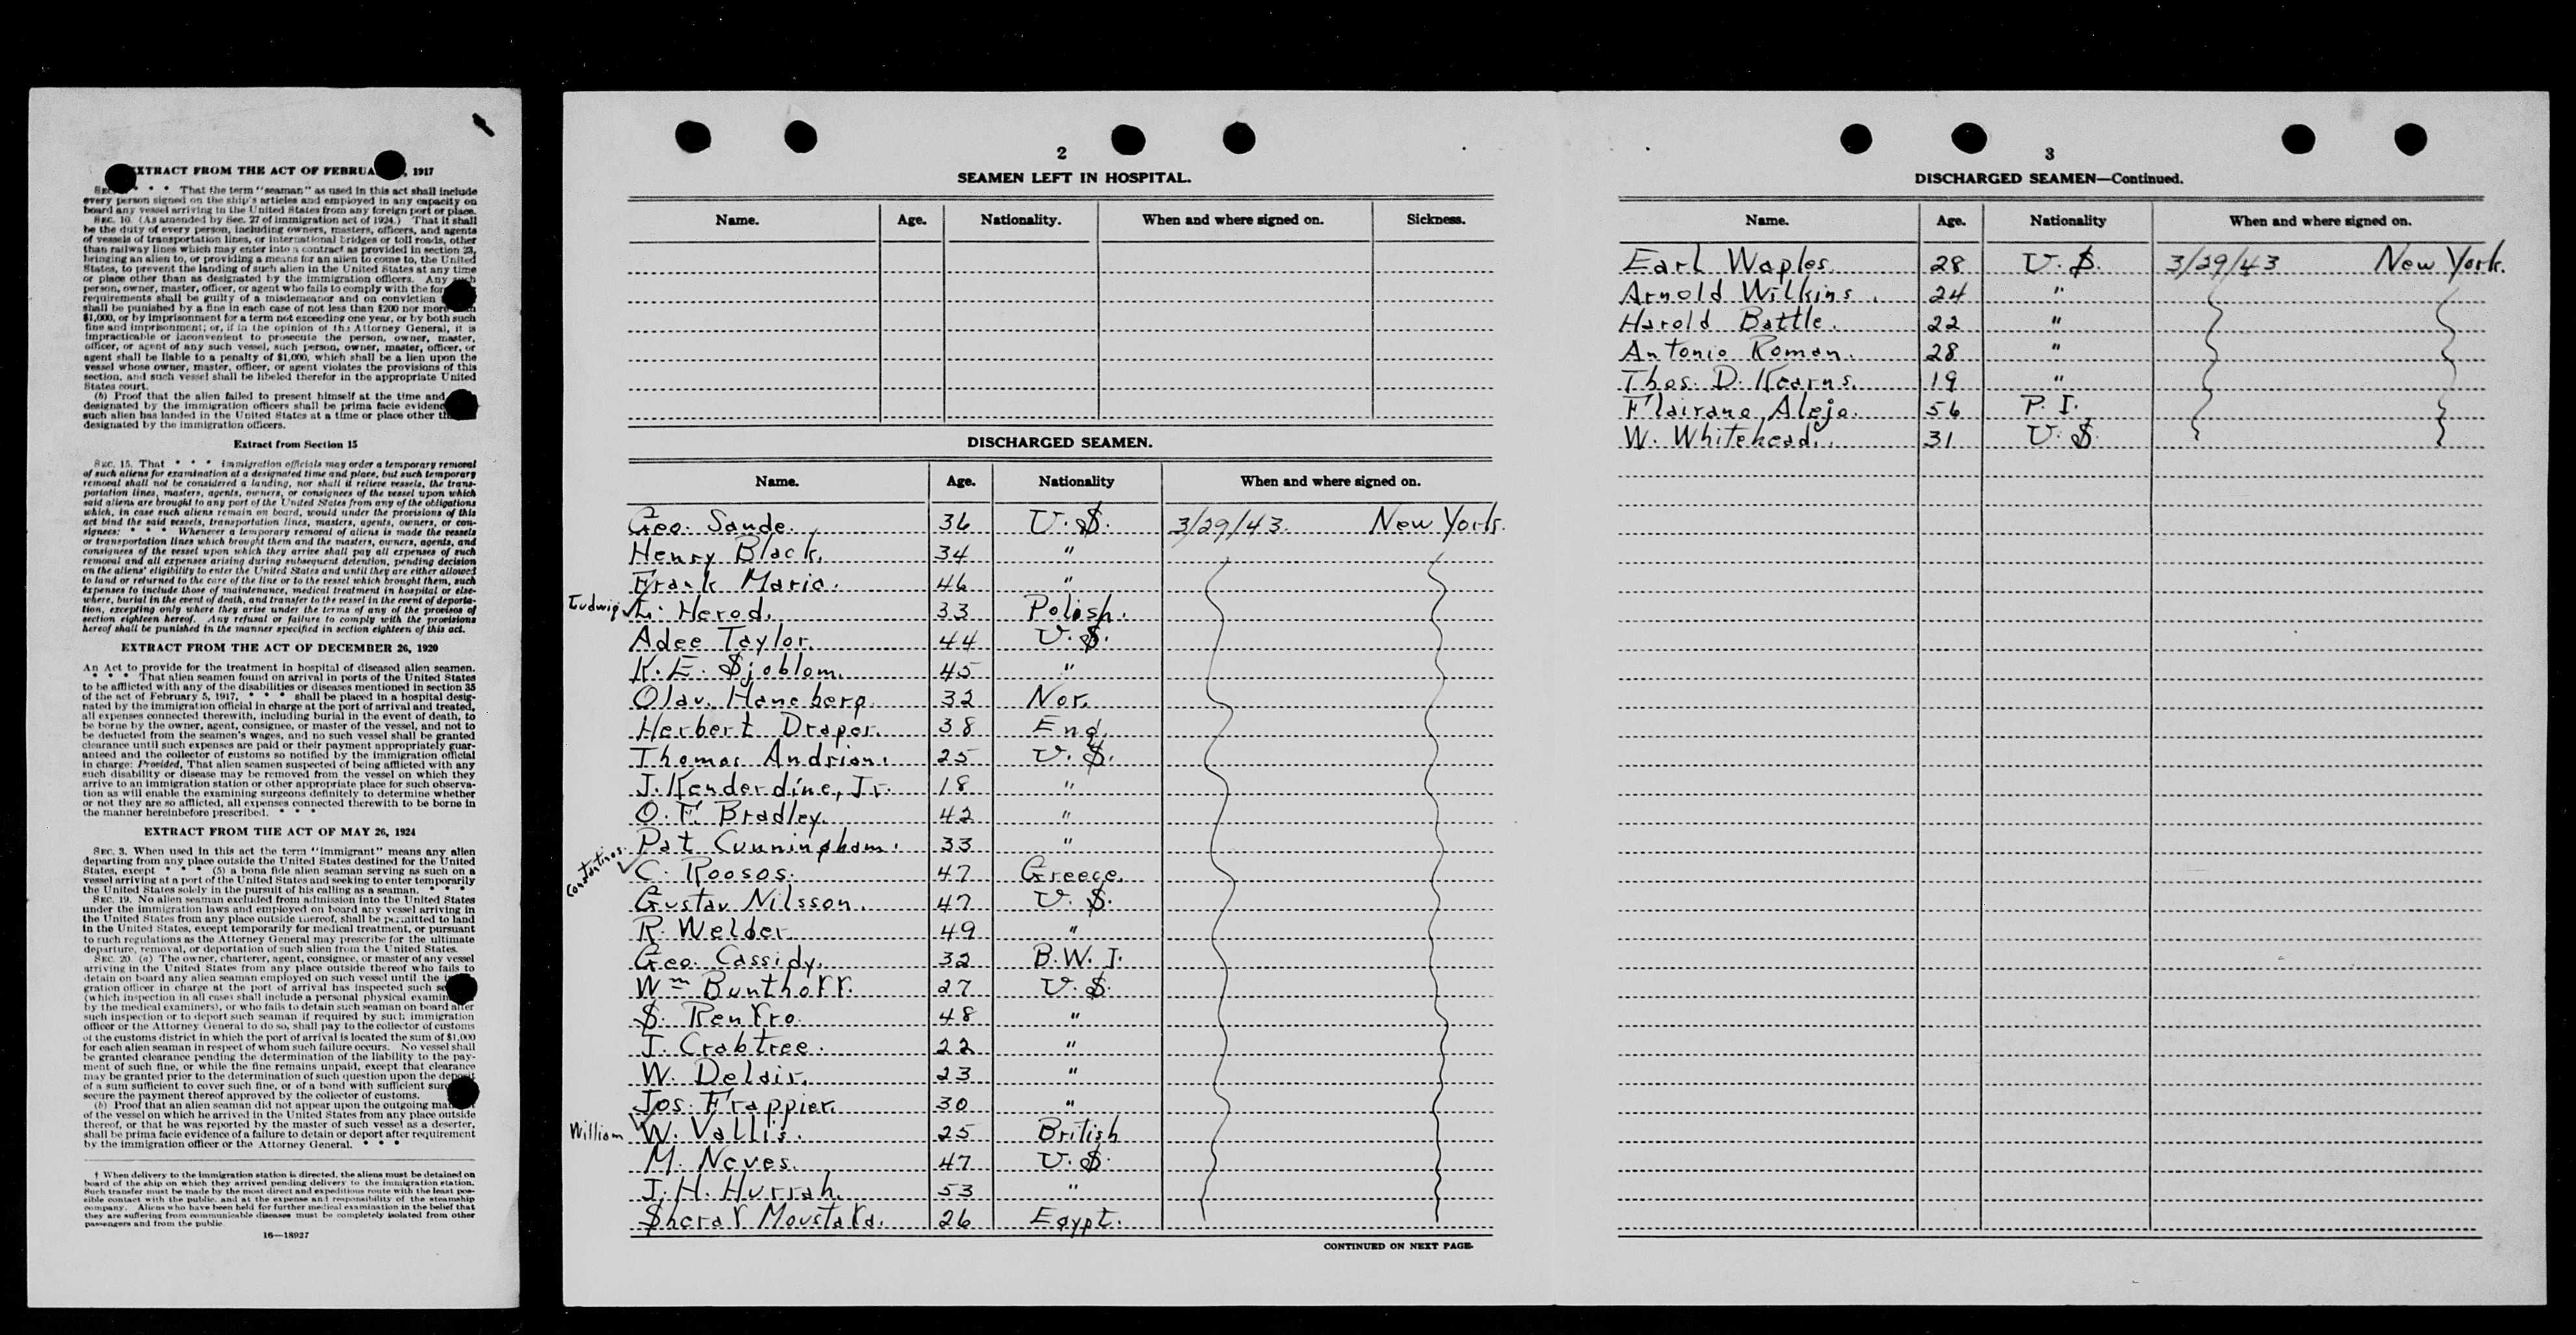 EXTRACT FROM THE ACT OF FEBRUARY , 1917
SEC. * * * That the term "seaman" as used in this act shall include
every person signed on the ship's articles and employed in any capacity on
board any vessel arriving in the United States from any foreign port or place.
SEC. 10. (As amended by Sec. 27 of immigration act of 1924.) That it shall
be the duty of every person, including owners, masters, officers, and agents
of vessels of transportation lines, or international bridges or toll roads, other
than railway lines which may enter into a contract as provided in section 23,
bringing an alien to, or providing a means for an alien to come to, the United
States, to prevent the landing of such alien in the United States at any time
or place other than as designated by the immigration officers. Any such
person, owner, master, officer, or agent who fails to comply with the for
requirements shall be guilty of a misdemeanor and on conviction
shall be punished by a fine in each case of not less than $200 nor more than
$1,000, or by imprisonment for a term not exceeding one year, or by both such
fine and imprisonment; or, if in the opinion of the Attorney General, it is
impracticable or inconvenient to prosecute the person, owner, master,
officer, or agent of any such vessel, such person, owner, master, officer, or
agent shall be liable to a penalty of $1,000, which shall be a lien upon the
vessel whose owner, master, officer, or agent violates the provisions of this
section, and such vessel shall be libeled therefor in the appropriate United
States court.
(b) Proof that the alien failed to present himself at the time and
designated by the immigration officers shall be prima facie evidenc
such alien has landed in the United States at a time or place other th
designated by the immigration officers.
Extract from Section 15
SEC. 15. That * * * immigration officials may order a temporary removal
of such aliens for examination at a designated time and place, but such temporary
removal shall not be considered a landing, nor shall it relieve vessels, the trans-
portation lines, masters, agents, owners, or consignees of the vessel upon which
said aliens are brought to any port of the United States from any of the obligations
which, in case such aliens remain on board, would under the provisions of this
act bind the said vessels, transportation lines, masters, agents, owners, or con-
signees: * * * Whenever a temporary removal of aliens is made the vessels
or transportation lines which brought them and the masters, owners, agents, and
consignees of the vessel upon which they arrive shall pay all expenses of such
removal and all expenses arising during subsequent detention, pending decision
on the aliens' eligibility to enter the United States and until they are either allowed
to land or returned to the care of the line or to the vessel which brought them, such
expenses to include those of maintenance, medical treatment in hospital or else-
where, burial in the event of death, and transfer to the vessel in the event of deporta-
tion, excepting only where they arise under the terms of any of the provisos of
section eighteen hereof. Any refusal or failure to comply with the provisions
hereof shall be punished in the manner specified in section eighteen of this act.
EXTRACT FROM THE ACT OF DECEMBER 26, 1920
An Act to provide for the treatment in hospital of diseased alien seamen.
* * * That alien seamen found on arrival in ports of the United States
to be afflicted with any of the disabilities or diseases mentioned in section 35
of the act of February 5, 1917, * * * shall be placed in a hospital desig-
nated by the immigration official in charge at the port of arrival and treated,
all expenses connected therewith, including burial in the event of death, to
be borne by the owner, agent, consignee, or master of the vessel, and not to
be deducted from the seamen's wages, and no such vessel shall be granted
clearance until such expenses are paid or their payment appropriately guar-
anteed and the collector of customs so notified by the immigration official
in charge: Provided, That alien seamen suspected of being afflicted with any
such disability or disease may be removed from the vessel on which they
arrive to an immigration station or other appropriate place for such observa-
tion as will enable the examining surgeons definitely to determine whether
or not they are so afflicted, all expenses connected therewith to be borne in
the manner hereinbefore prescribed. * * *
EXTRACT FROM THE ACT OF MAY 26, 1924
SEC. 3. When used in this act the term "immigrant" means any alien
departing from any place outside the United States destined for the United
States, except * * * (5) a bona fide alien seaman serving as such on a
vessel arriving at a port of the United States and seeking to enter temporarily
the United States solely in the pursuit of his calling as a seaman. * * *
SEC. 19. No alien seaman excluded from admission into the United States
under the immigration laws and employed on board any vessel arriving in
the United States from any place outside thereof, shall be permitted to land
in the United States, except temporarily for medical treatment, or pursuant
to such regulations as the Attorney General may prescribe for the ultimate
departure, removal, or deportation of such alien from the United States.
SEC. 20. (a) The owner, charterer, agent, consignee, or master of any vessel
arriving in the United States from any place outside thereof who fails to
detain on board any alien seaman employed on such vessel until the i
gration officer in charge at the port of arrival has inspected such se
(which inspection in all cases shall include a personal physical examin
by the medical examiners), or who fails to detain such seaman on board after
such inspection or to deport such seaman if required by such immigration
officer or the Attorney General to do so, shall pay to the collector of customs
of the customs district in which the port of arrival is located the sum of $1,000
for each alien seaman in respect of whom such failure occurs. No vessel shall
be granted clearance pending the determination of the liability to the pay-
ment of such fine, or while the fine remains unpaid, except that clearance
may be granted prior to the determination of such question upon the deposit
of a sum sufficient to cover such fine, or of a bond with sufficient sure
secure the payment thereof approved by the collector of customs.
(b) Proof that an alien seaman did not appear upon the outgoing ma
of the vessel on which he arrived in the United States from any place outside
thereof, or that he was reported by the master of such vessel as a deserter,
shall be prima facie evidence of a failure to detain or deport after requirement
by the immigration officer or the Attorney General. * * *
† When delivery to the immigration station is directed, the aliens must be detained on
board of the ship on which they arrived pending delivery to the immigration station.
Such transfer must be made by the most direct and expeditious route with the least pos-
sible contact with the public, and at the expense and responsibility of the steamship
company. Aliens who have been held for further medical examination in the belief that
they are suffering from communicable diseases must be completely isolated from other
passengers and from the public.
16—18927
2
SEAMEN LEFT IN HOSPITAL.
Name. Age. Nationality. When and where signed on. Sickness.
DISCHARGED SEAMEN.
Name. Age. Nationality When and where signed on.
Geo. Sande. 36 U.S. 3/29/43. New York.
Henry Black. 34 "
Frank Maria. 46 "
Ludwig L. Herod. 33 Polish.
Adee Taylor. 44 U.S.
K. E. Sjoblom. 45 "
Olav. Haneberg. 32 Nor.
Herbert Draper. 38 Eng.
Thomas Andrion. 25 U.S.
J. Kenderdine, Jr. 18 "
O. F. Bradley. 42 "
Pat Cunningham. 33 "
Constantinos C. Roosos. 47 Greece.
Gustav Nilsson. 47 U.S.
R. Welder. 49 "
Geo. Cassidy. 32 B.W.I.
Wm Bunthoff. 27 U.S.
S. Renfro. 48 "
J. Crabtree. 22 "
W. Delair. 23 "
Jos. Frappier. 30 "
William W. Vallis. 25 British
M. Neves. 47 U.S.
J. H. Hurrah. 53 "
Sheraf Moustafa. 26 Egypt.
CONTINUED ON NEXT PAGE.
3
DISCHARGED SEAMEN—Continued.
Name. Age. Nationality When and where signed on.
Earl Waples. 28 U.S. 3/29/43 New York.
Arnold Wilkins. 24 "
Harold Battle. 22 "
Antonio Roman. 28 "
Thos. D. Kearns. 19 "
Flairano Alejo. 56 P.I.
W. Whitehead. 31 U.S.